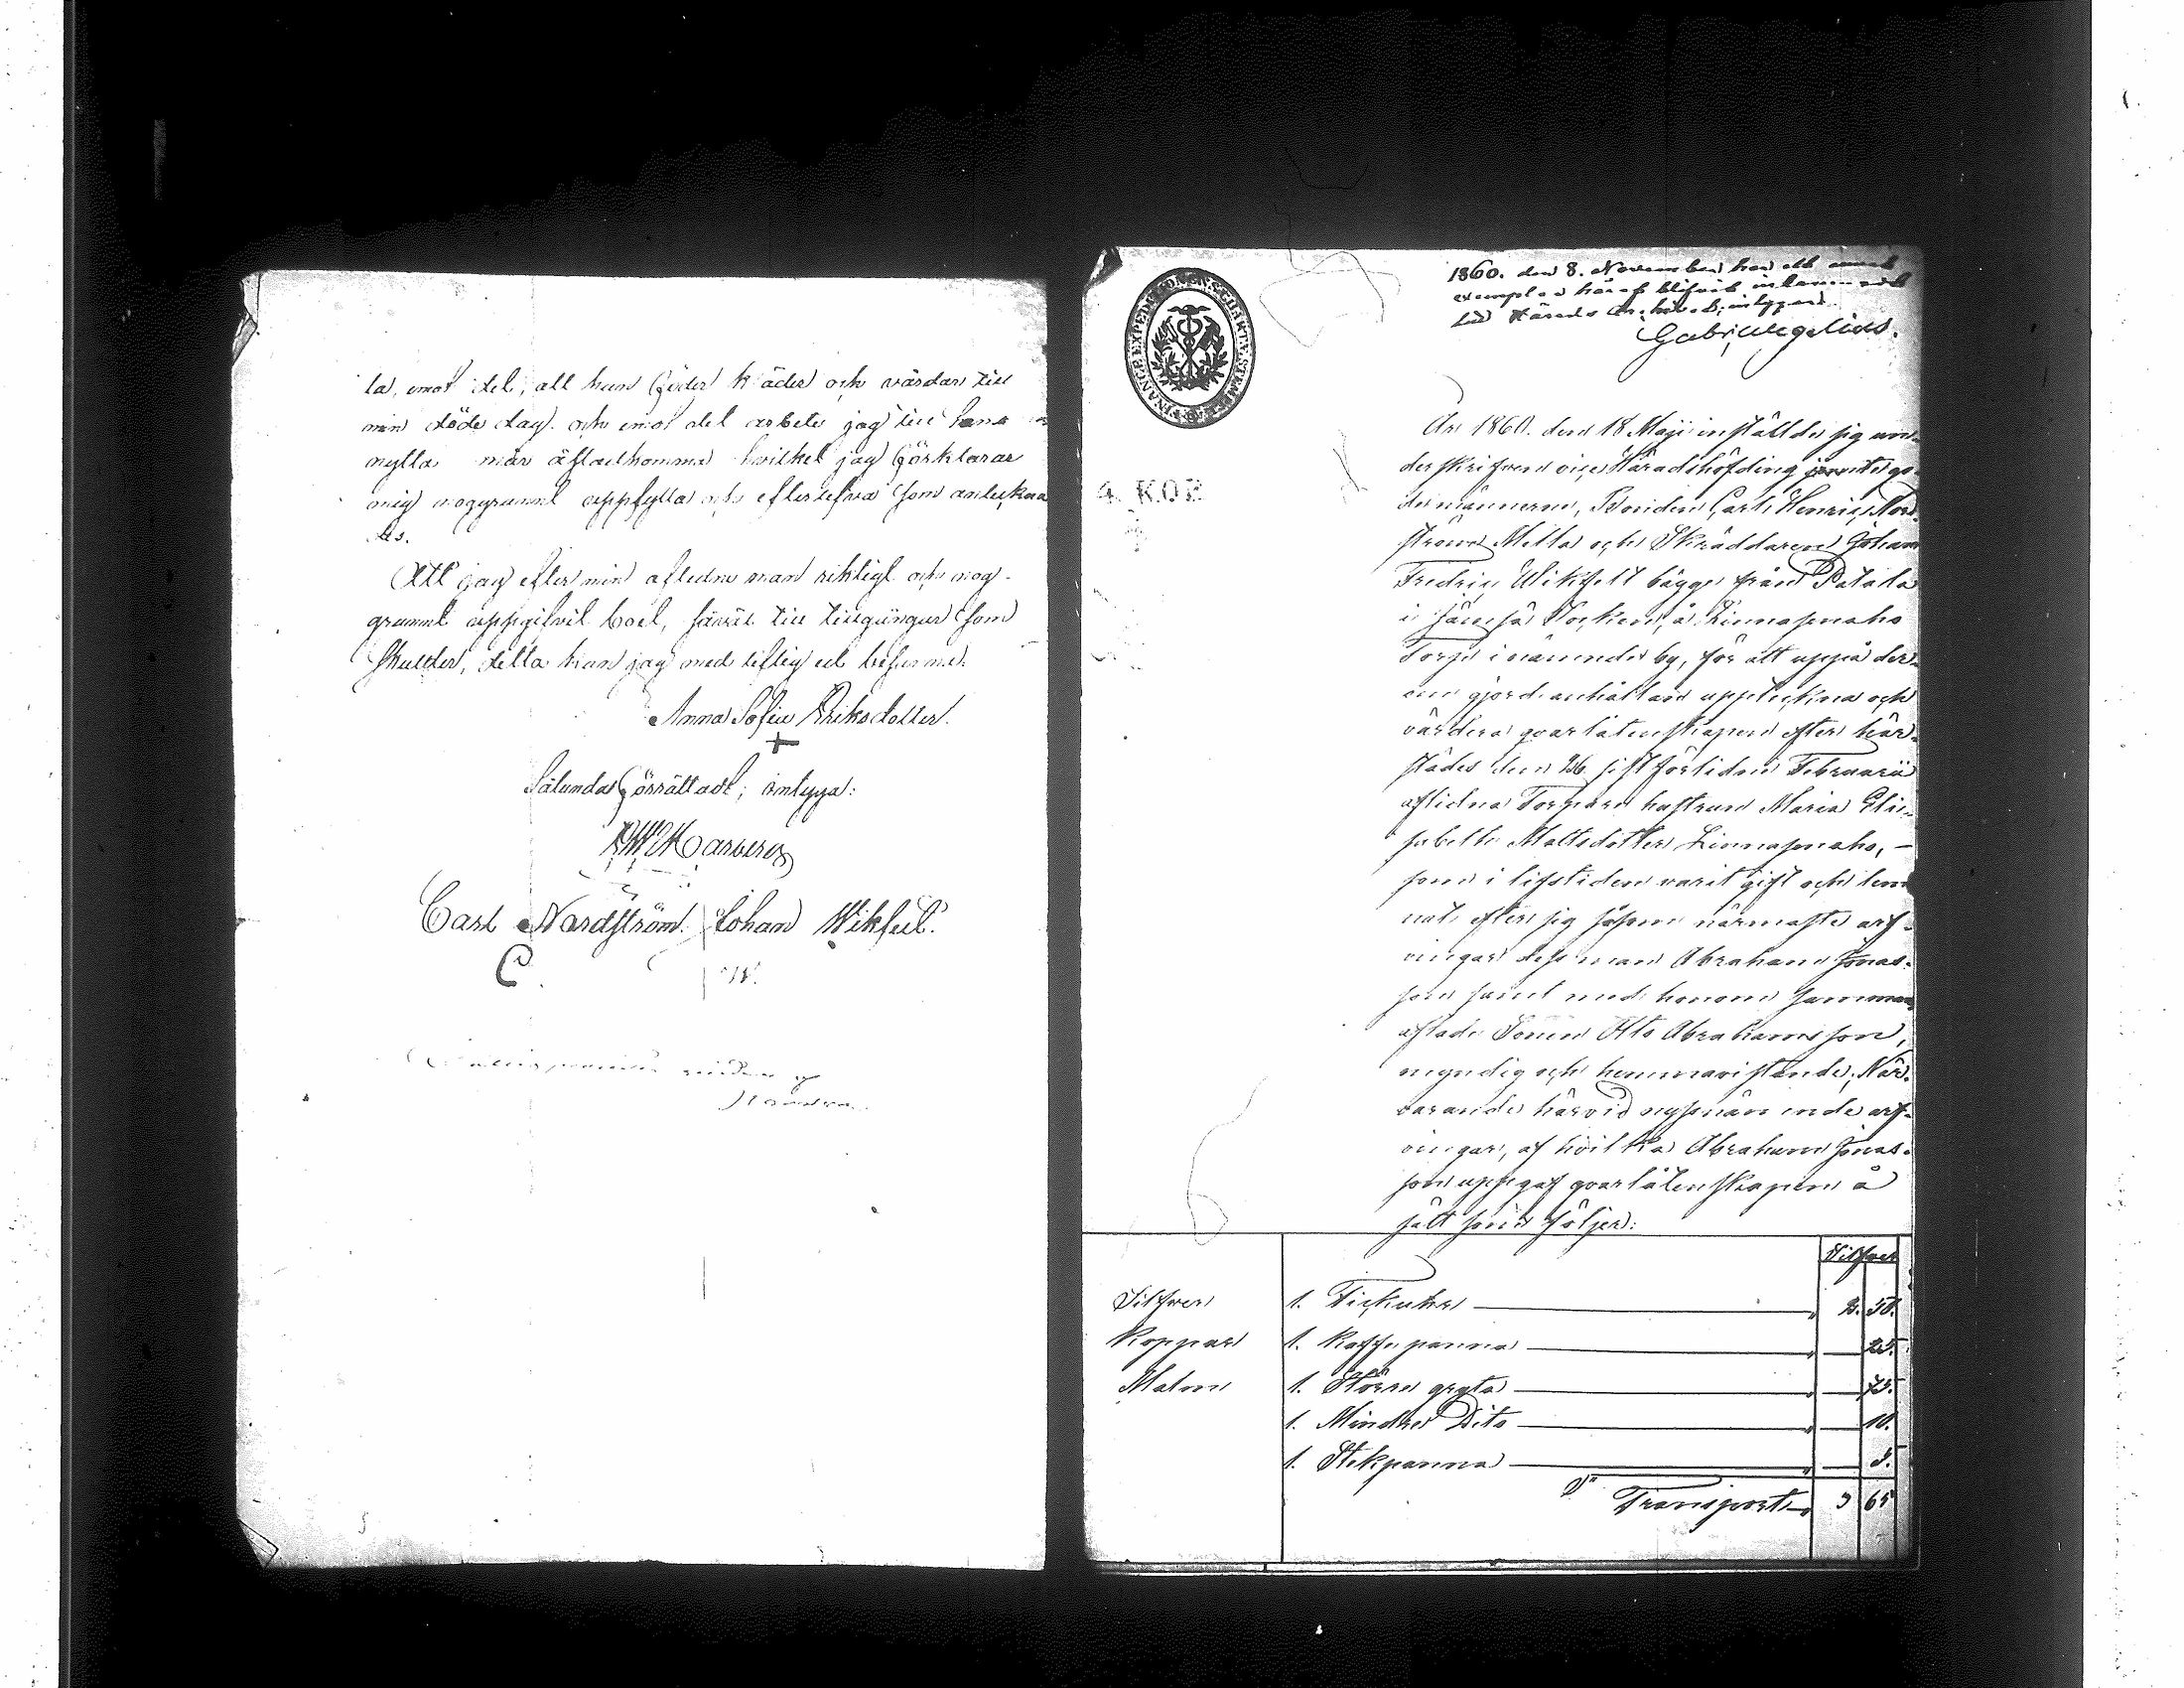 la, emot det, att han föder kläder och vårdar till
min döde dag. och emot det arbete jag till hans
nytta når åstadkomma hvilket jag förklarar
mig noggrannt uppfylla och efterlefva som anteckna
des.
Att jag efter min afledne man riktigt och nog-
grannt uppgifvit boet, såväl till tillgångar som
skulder, detta kan jag med liflig ed besanna.
Anna Sofia Eriksdotter.
+
Sålunda förrättadt; intyga:
Carl Nordström. Johan Wikfelt.
C W.
FINANCE EXPEDITIONEN CHARTÆ STEMPEL
4. KOP.
1860. den 8. November har ett annat
exemplar häraf blifvit inlemnadt
till Härads Archivet; intygar.
Gabr. Wegelius.
År 1860. den 18 Maji inställde sig un-
derskrifven vice Häradshöfding jemte go-
de männerne, Bonden Carl Henric Nord-
ström Mella och Skräddaren Johan
Fredric Wikfelt bägge från Patala
i Jämsä Socken, å Linnasmaho
Torp i nämnde by, för att uppå der-
om gjord anhållan uppteckna och
värdera qvarlåtenskapen efter här-
städes den 26 sistförlidne Februarii
aflidna Torpare hustrun Maria Eli-
sabeth Mattsdotter Linnasmaho, –
som i lifstiden varit gift och lem-
nat efter sig såsom närmaste arf-
vingar dess man Abraham Jonas-
son samt med honom samman
aflade Sonen Otto Abrahamsson,
myndig och hemmavistande; När-
varande härvid nyssnämnde arf-
vingar, af hvilka Abraham Jonas-
son uppgaf qvarlåtenskapen å
sätt som följer:
Silfver
Silfver 1. Fickuhr 2. 50.
Koppar 1. Kaffepanna 25.
Malm 1. Större gryta 75.
1. Mindre Dito 10.
1. Stekpanna 5.
Transport 3 65